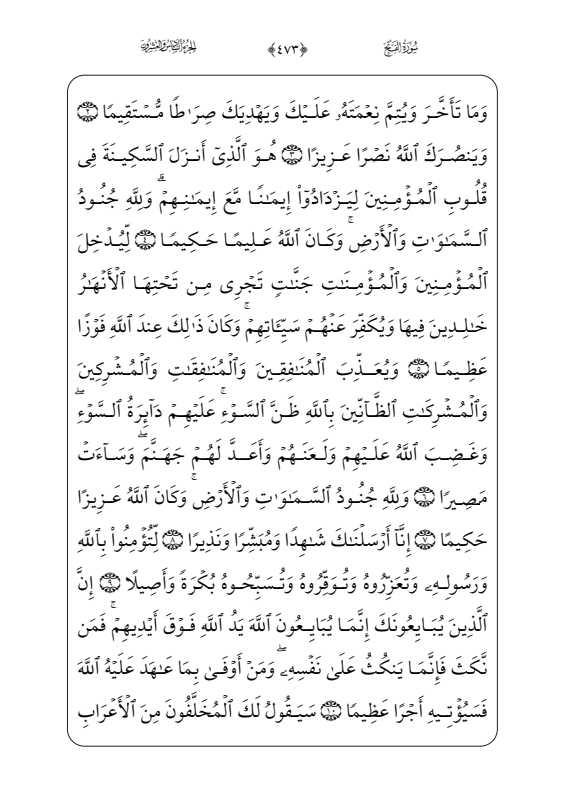 سُورَةُ الفَتۡحِ ﴿٤٧٣﴾ الجُزۡءُ السَّادِسُ وَالعِشۡرُونَ
وَمَا تَأَخَّرَ وَيُتِمَّ نِعۡمَتَهُۥ عَلَيۡكَ وَيَهۡدِيَكَ صِرَٰطٗا مُّسۡتَقِيمٗا ٢
وَيَنصُرَكَ ٱللَّهُ نَصۡرًا عَزِيزًا ٣ هُوَ ٱلَّذِيٓ أَنزَلَ ٱلسَّكِينَةَ فِي
قُلُوبِ ٱلۡمُؤۡمِنِينَ لِيَزۡدَادُوٓاْ إِيمَٰنٗا مَّعَ إِيمَٰنِهِمۡۗ وَلِلَّهِ جُنُودُ
ٱلسَّمَٰوَٰتِ وَٱلۡأَرۡضِۚ وَكَانَ ٱللَّهُ عَلِيمًا حَكِيمٗا ٤ لِّيُدۡخِلَ
ٱلۡمُؤۡمِنِينَ وَٱلۡمُؤۡمِنَٰتِ جَنَّٰتٖ تَجۡرِي مِن تَحۡتِهَا ٱلۡأَنۡهَٰرُ
خَٰلِدِينَ فِيهَا وَيُكَفِّرَ عَنۡهُمۡ سَيِّـَٔاتِهِمۡۚ وَكَانَ ذَٰلِكَ عِندَ ٱللَّهِ فَوۡزًا
عَظِيمٗا ٥ وَيُعَذِّبَ ٱلۡمُنَٰفِقِينَ وَٱلۡمُنَٰفِقَٰتِ وَٱلۡمُشۡرِكِينَ
وَٱلۡمُشۡرِكَٰتِ ٱلظَّآنِّينَ بِٱللَّهِ ظَنَّ ٱلسَّوۡءِۚ عَلَيۡهِمۡ دَآئِرَةُ ٱلسَّوۡءِۖ
وَغَضِبَ ٱللَّهُ عَلَيۡهِمۡ وَلَعَنَهُمۡ وَأَعَدَّ لَهُمۡ جَهَنَّمَۖ وَسَآءَتۡ
مَصِيرٗا ٦ وَلِلَّهِ جُنُودُ ٱلسَّمَٰوَٰتِ وَٱلۡأَرۡضِۚ وَكَانَ ٱللَّهُ عَزِيزًا
حَكِيمًا ٧ إِنَّآ أَرۡسَلۡنَٰكَ شَٰهِدٗا وَمُبَشِّرٗا وَنَذِيرٗا ٨ لِّتُؤۡمِنُواْ بِٱللَّهِ
وَرَسُولِهِۦ وَتُعَزِّرُوهُ وَتُوَقِّرُوهُ وَتُسَبِّحُوهُ بُكۡرَةٗ وَأَصِيلًا ٩ إِنَّ
ٱلَّذِينَ يُبَايِعُونَكَ إِنَّمَا يُبَايِعُونَ ٱللَّهَ يَدُ ٱللَّهِ فَوۡقَ أَيۡدِيهِمۡۚ فَمَن
نَّكَثَ فَإِنَّمَا يَنكُثُ عَلَىٰ نَفۡسِهِۦۖ وَمَنۡ أَوۡفَىٰ بِمَا عَٰهَدَ عَلَيۡهُ ٱللَّهَ
فَسَيُؤۡتِيهِ أَجۡرًا عَظِيمٗا ١٠ سَيَقُولُ لَكَ ٱلۡمُخَلَّفُونَ مِنَ ٱلۡأَعۡرَابِ